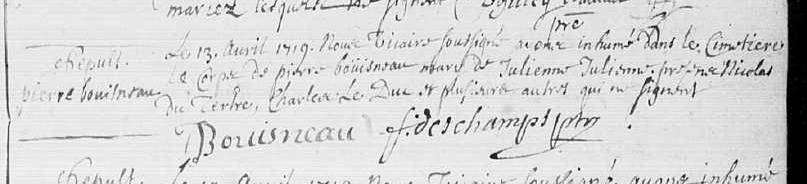 mariez lesquels ne signent
pre
Le 13. Avril 1719. Nous Vicaire soussigné avons inhumé dans le Cimetiere
Sepult. le Corps de pierre boüisneau mary de Julienne Julienne. presens Nicolas
pierre bouisneau Du Tertre, Charles Le Duc et plusieurs autres qui ne signent
Bouisneau f. deschamps ptre
Sepult. Le Avril 1719 Nous Vicaire soussigné avons inhumé